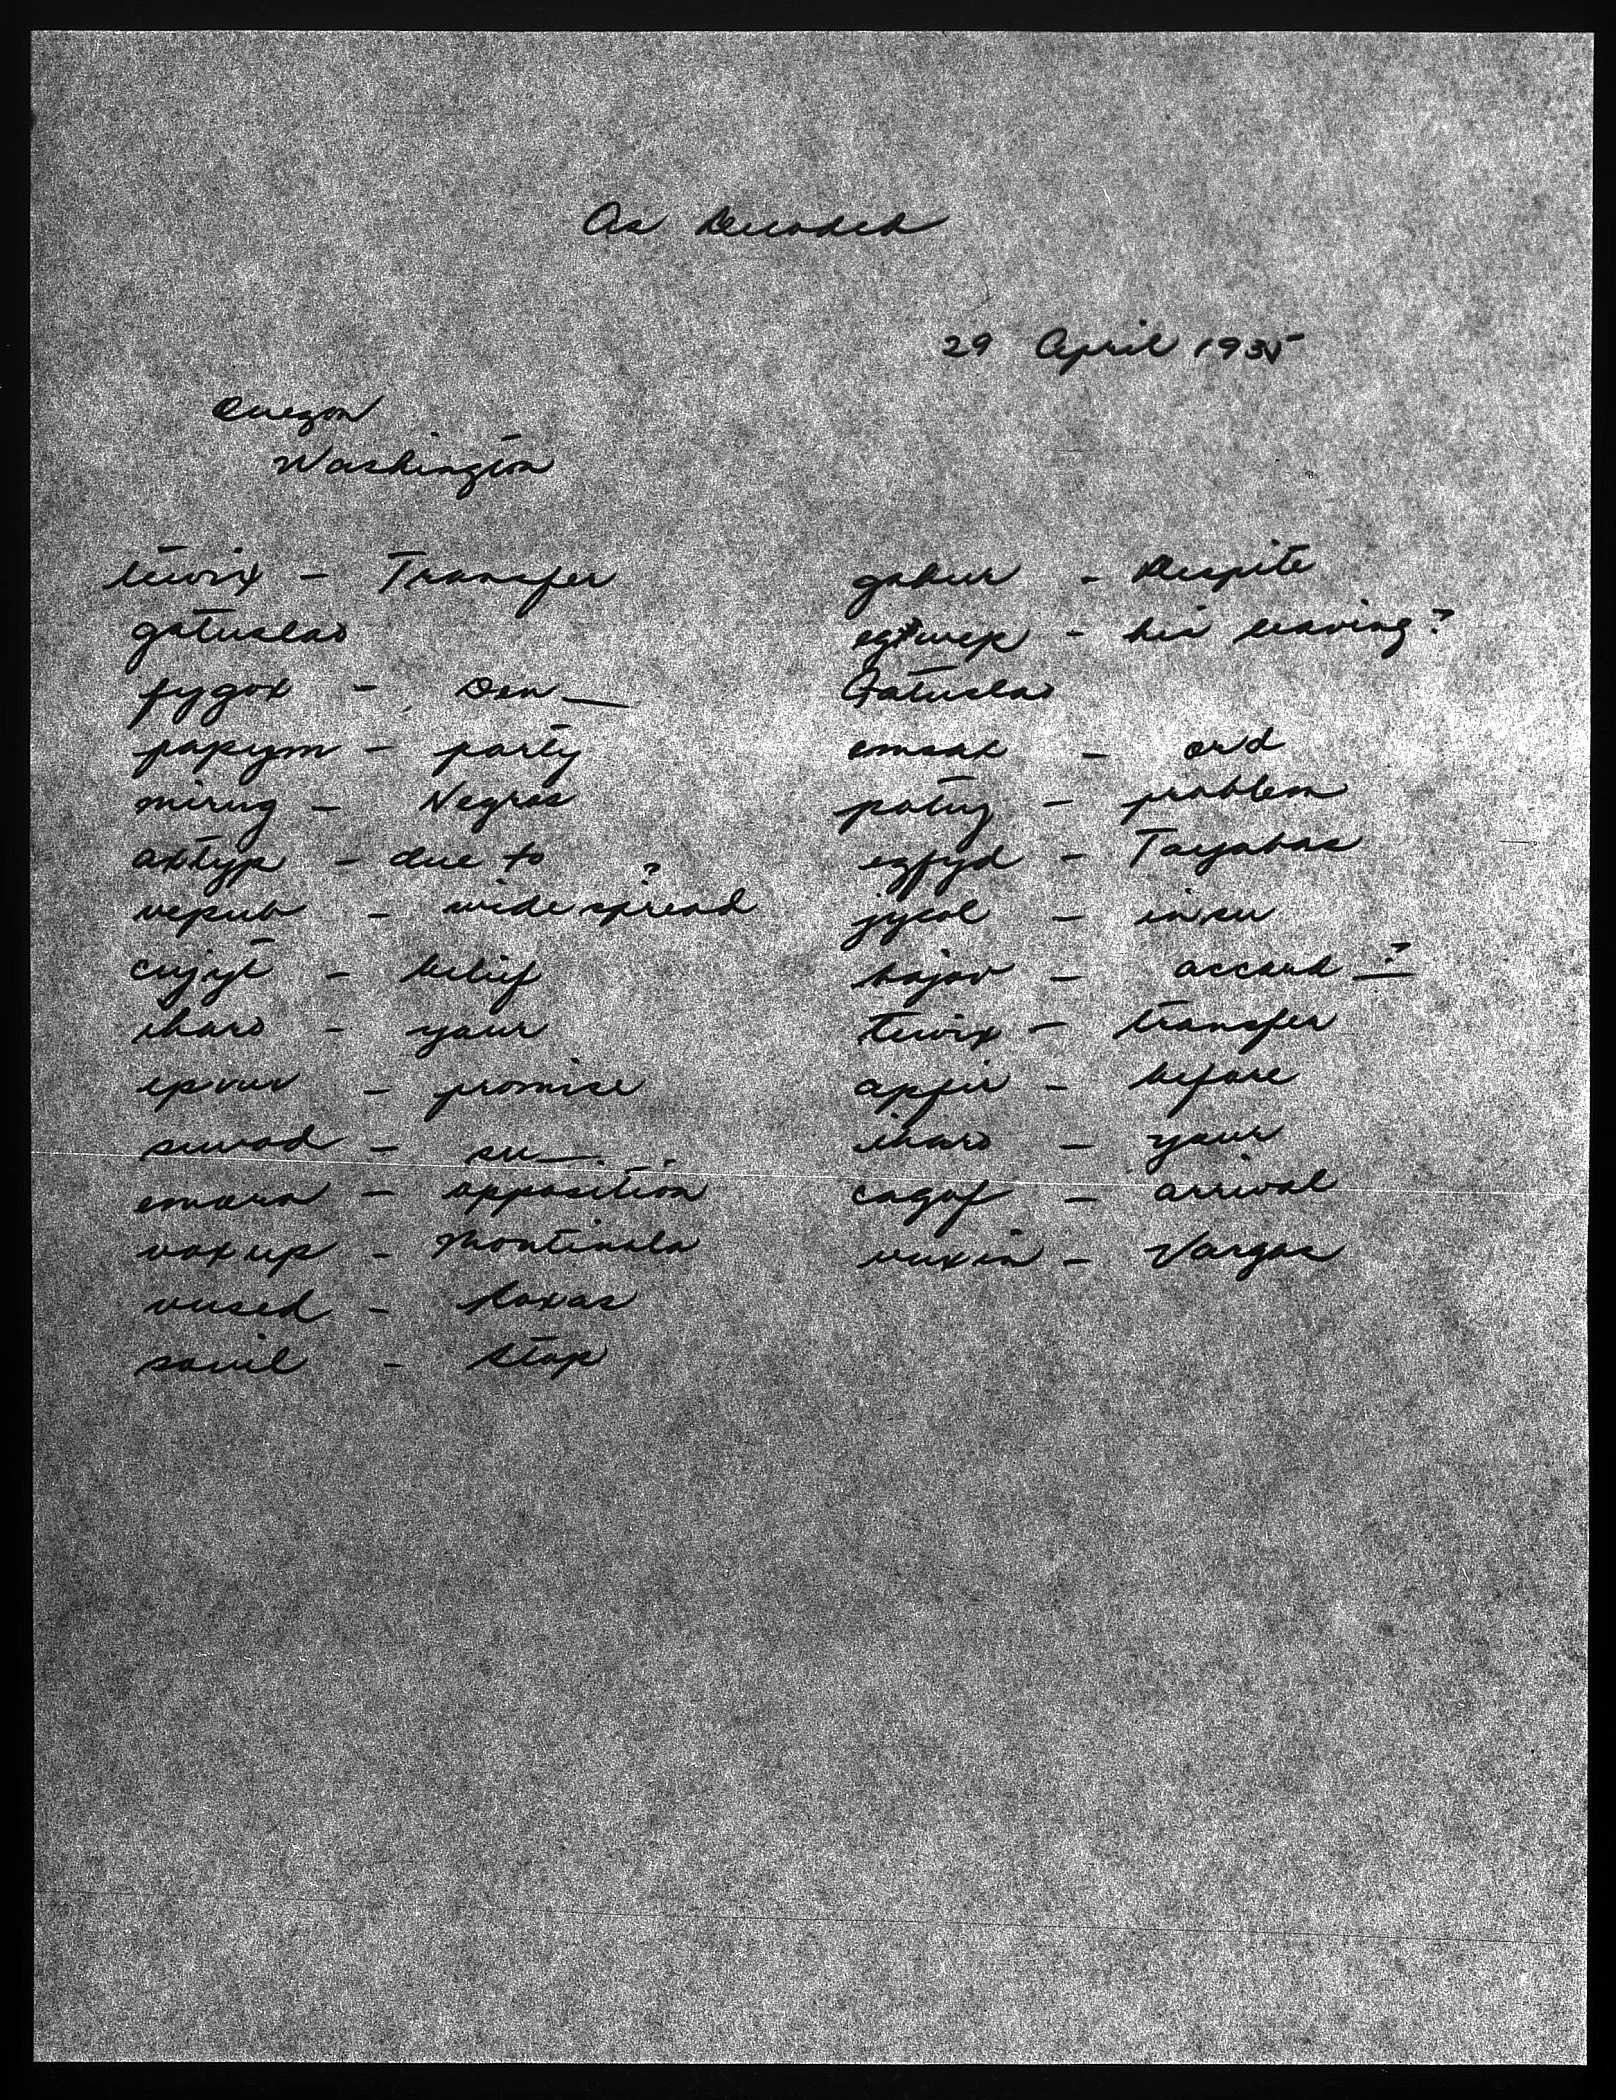 As Decoded
29 April 1935
Quezon
Washington
tewix - Transfer
gatuslao
fygox - Den__
papym - party
mirug - Negros
axtyp - due to
vepub - wide spread ?
cujyt - belief
iharo - your
epvuv - promise
suvod - su__
emara - opposition
voxup - Montinola
vused - Roxas
souil - stop
gabur - Despite
egtwep - his leaving?
Gatuslao
emsak - and
potuz - problem
ezfyd - Tayabas
jycol - in su
hojov - accord __?
tewix - transfer
apfir - before
iharo - your
cagof - arrival
vuxin - Vargas